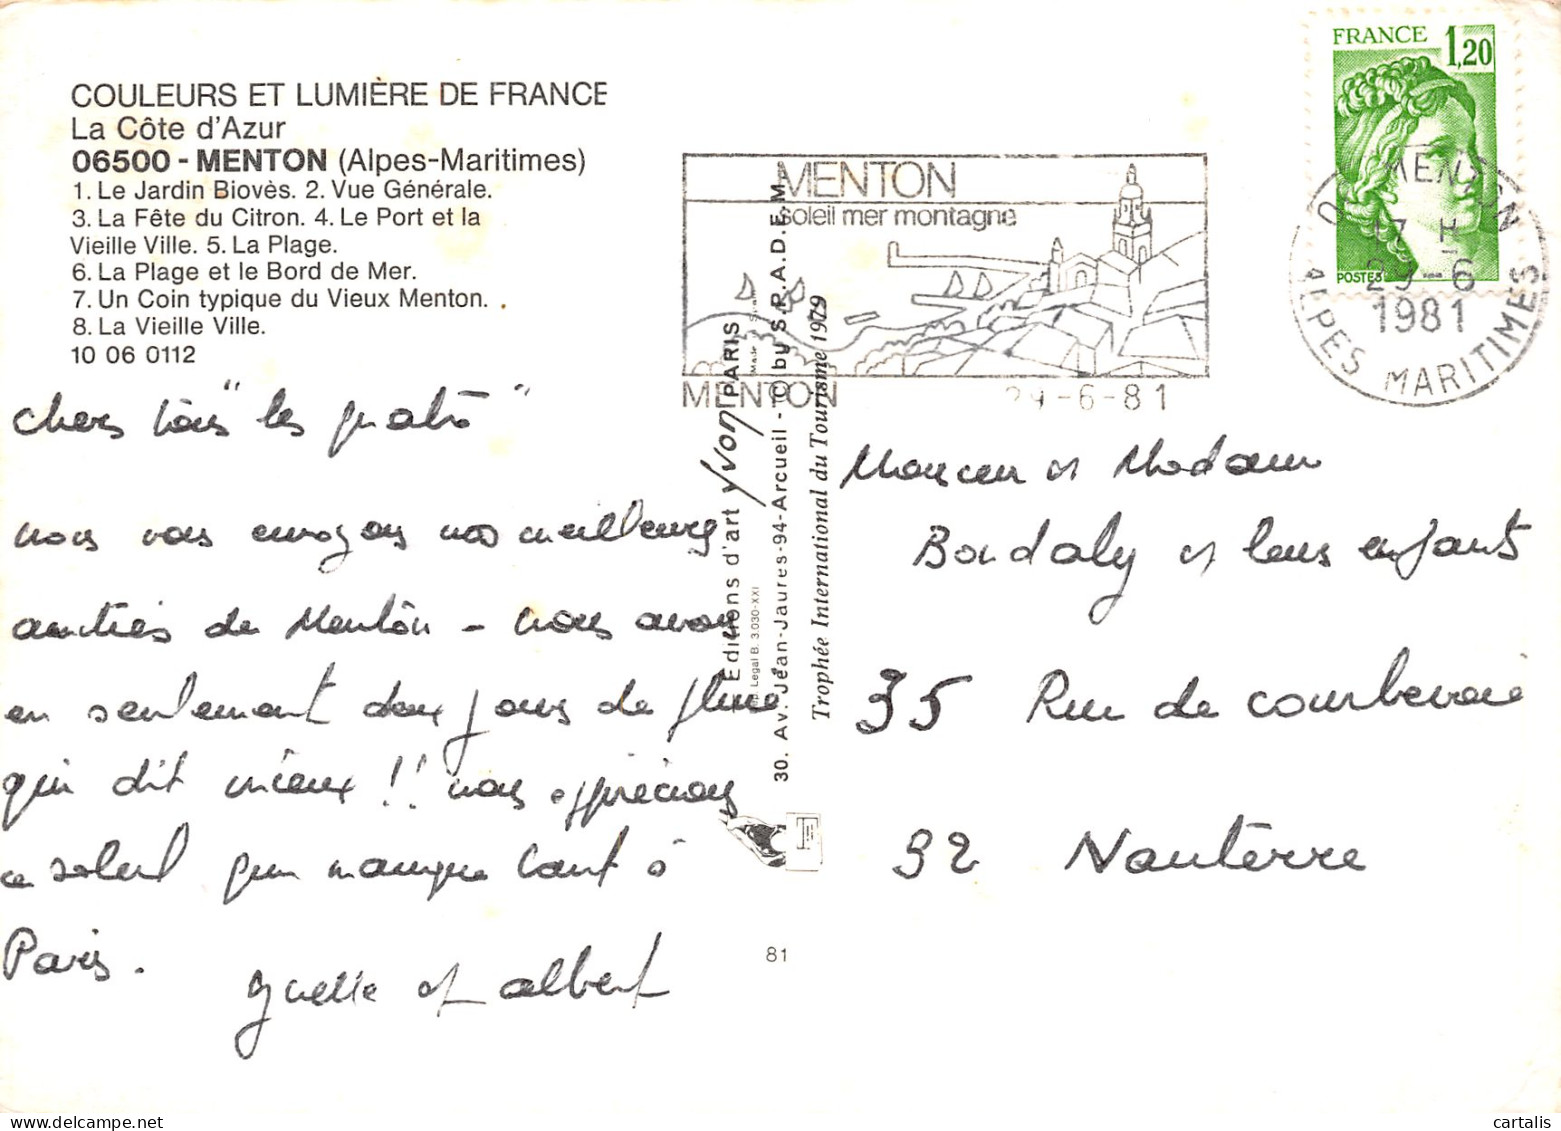 COULEURS ET LUMIÈRE DE FRANCE
La Côte d'Azur
06500 - MENTON (Alpes-Maritimes)
1. Le Jardin Biovès. 2. Vue Générale.
3. La Fête du Citron. 4. Le Port et la
Vieille Ville. 5. La Plage.
6. La Plage et le Bord de Mer.
7. Un Coin typique du Vieux Menton.
8. La Vieille Ville.
10 06 0112
chers tous "les quatre"
nous vous envoyons nos meilleures
amitiés de Menton - nous avons
eu seulement deux jours de pluie
qui dit mieux !! nous apprécions
ce soleil qui manque tant à
Paris.
et albert
Editions d'art Yvon PARIS
Légal B. 3.030-XXI
30. Av. Jean-Jaures-94-Arcueil - © by S.P.A.D.E.M.
Trophée International du Tourisme 1979
81
MENTON
soleil mer montagne
MENTON
29-6-81
FRANCE 1,20
POSTES
MENTON
17 H
29-6
1981
ALPES MARITIMES
Monsieur et Madame
Bordaly et leurs enfants
35 Rue de courbevoie
92 Nanterre
cartalis